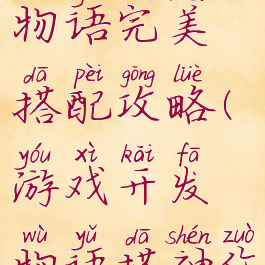 物语完美
dā pèi gōng lüè
搭配攻略(
yóu xì kāi fā
游戏开发
wù yǔ dā shén zuò
物语搭神作